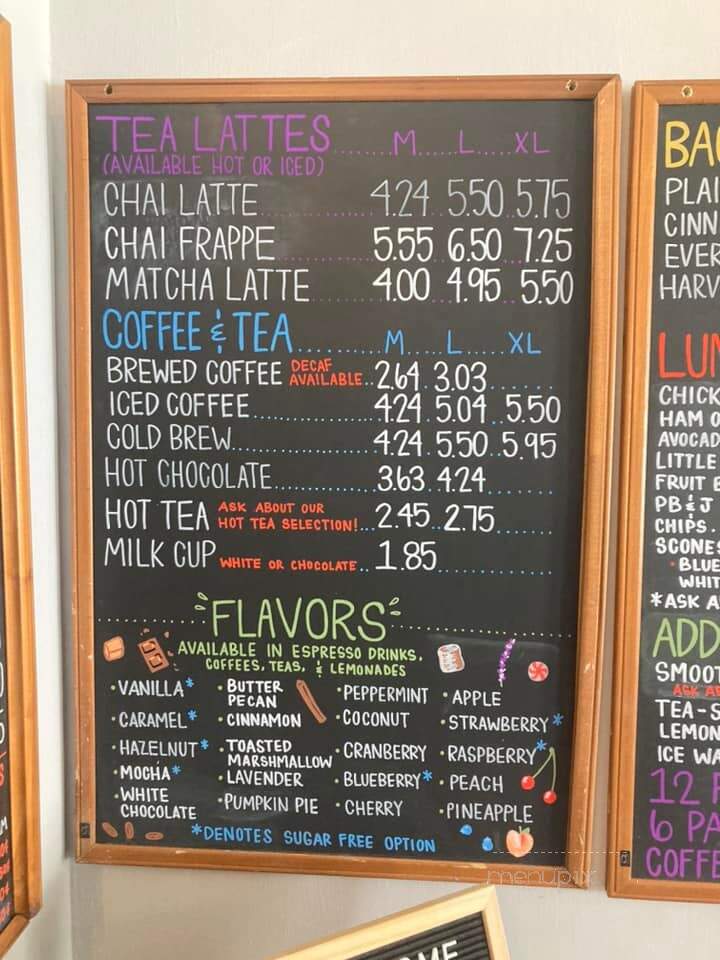 TEA LATTES......M.....L.....XL
(AVAILABLE HOT OR ICED)
CHAI LATTE 4.24 5.50 5.75
CHAI FRAPPE 5.55 6.50 7.25
MATCHA LATTE 4.00 4.95 5.50
COFFEE & TEA......M....L.....XL
BREWED COFFEE DECAF AVAILABLE..2.64.3.03
ICED COFFEE 4.24 5.04 5.50
COLD BREW 4.24 5.50 5.95
HOT CHOCOLATE 3.63 4.24
HOT TEA ASK ABOUT OUR HOT TEA SELECTION!...2.45 2.75
MILK CUP WHITE OR CHOCOLATE..1.85
FLAVORS
AVAILABLE IN ESPRESSO DRINKS,
COFFEES, TEAS, & LEMONADES
•VANILLA*
•CARAMEL*
•HAZELNUT*
•MOCHA*
•WHITE
CHOCOLATE
•BUTTER
PECAN
•CINNAMON
•TOASTED
MARSHMALLOW
•LAVENDER
•PUMPKIN PIE
•PEPPERMINT
•COCONUT
•CRANBERRY
•BLUEBERRY*
•CHERRY
•APPLE
•STRAWBERRY*
•RASPBERRY*
•PEACH
•PINEAPPLE
*DENOTES SUGAR FREE OPTION
PLAI
CINN
EVER
HARV
LUN
CHICK
HAM O
AVOCAD
LITTLE
FRUIT
PB & J
CHIPS.
SCONES
•BLUE
WHIT
*ASK A
ADD
SMOOT
ASK A
TEA-S
LEMON
ICE WA
12 
6 PA
COFFE
menupix